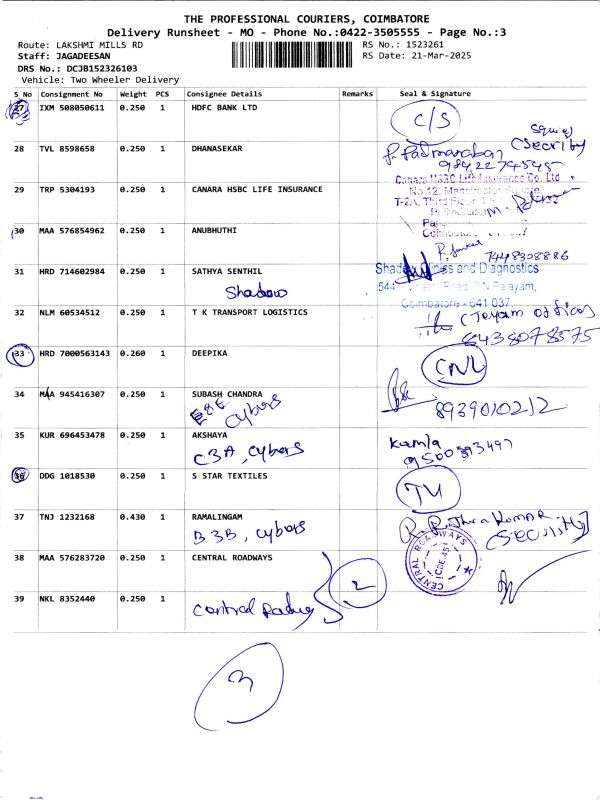 THE PROFESSIONAL COURIERS, COIMBATORE
Delivery Runsheet - MO - Phone No.:0422-3505555 - Page No.:3
Route: LAKSHMI MILLS RD RS No.: 1523261
Staff: JAGADEESAN RS Date: 21-Mar-2025
DRS No.: DCJB152326103
Vehicle: Two Wheeler Delivery
S No Consignment No Weight PCS Consignee Details Remarks Seal & Signature
27 IXM 508050611 0.250 1 HDFC BANK LTD C/S
28 TVL 8598658 0.250 1 DHANASEKAR
29 TRP 5304193 0.250 1 CANARA HSBC LIFE INSURANCE
Canara HSBC Life Insurance Co. Ltd
30 MAA 576854962 0.250 1 ANUBHUTHI
7448308886
31 HRD 714602984 0.250 1 SATHYA SENTHIL
Shadow Clinics and Diagnostics
Shadow
Coimbatore - 641 037.
32 NLM 60534512 0.250 1 T K TRANSPORT LOGISTICS
8438078575
33 HRD 7000563143 0.260 1 DEEPIKA CNL
34 MAA 945416307 0.250 1 SUBASH CHANDRA
E8E Cybers 8939010212
35 KUR 696453478 0.250 1 AKSHAYA Kamla
C3A, Cybers
36 DDG 1018530 0.250 1 S STAR TEXTILES
37 TNJ 1232168 0.430 1 RAMALINGAM
B3B, Cybers
38 MAA 576283720 0.250 1 CENTRAL ROADWAYS
CENTRAL ROADWAYS
CBE-45
2
39 NKL 8352440 0.250 1
3